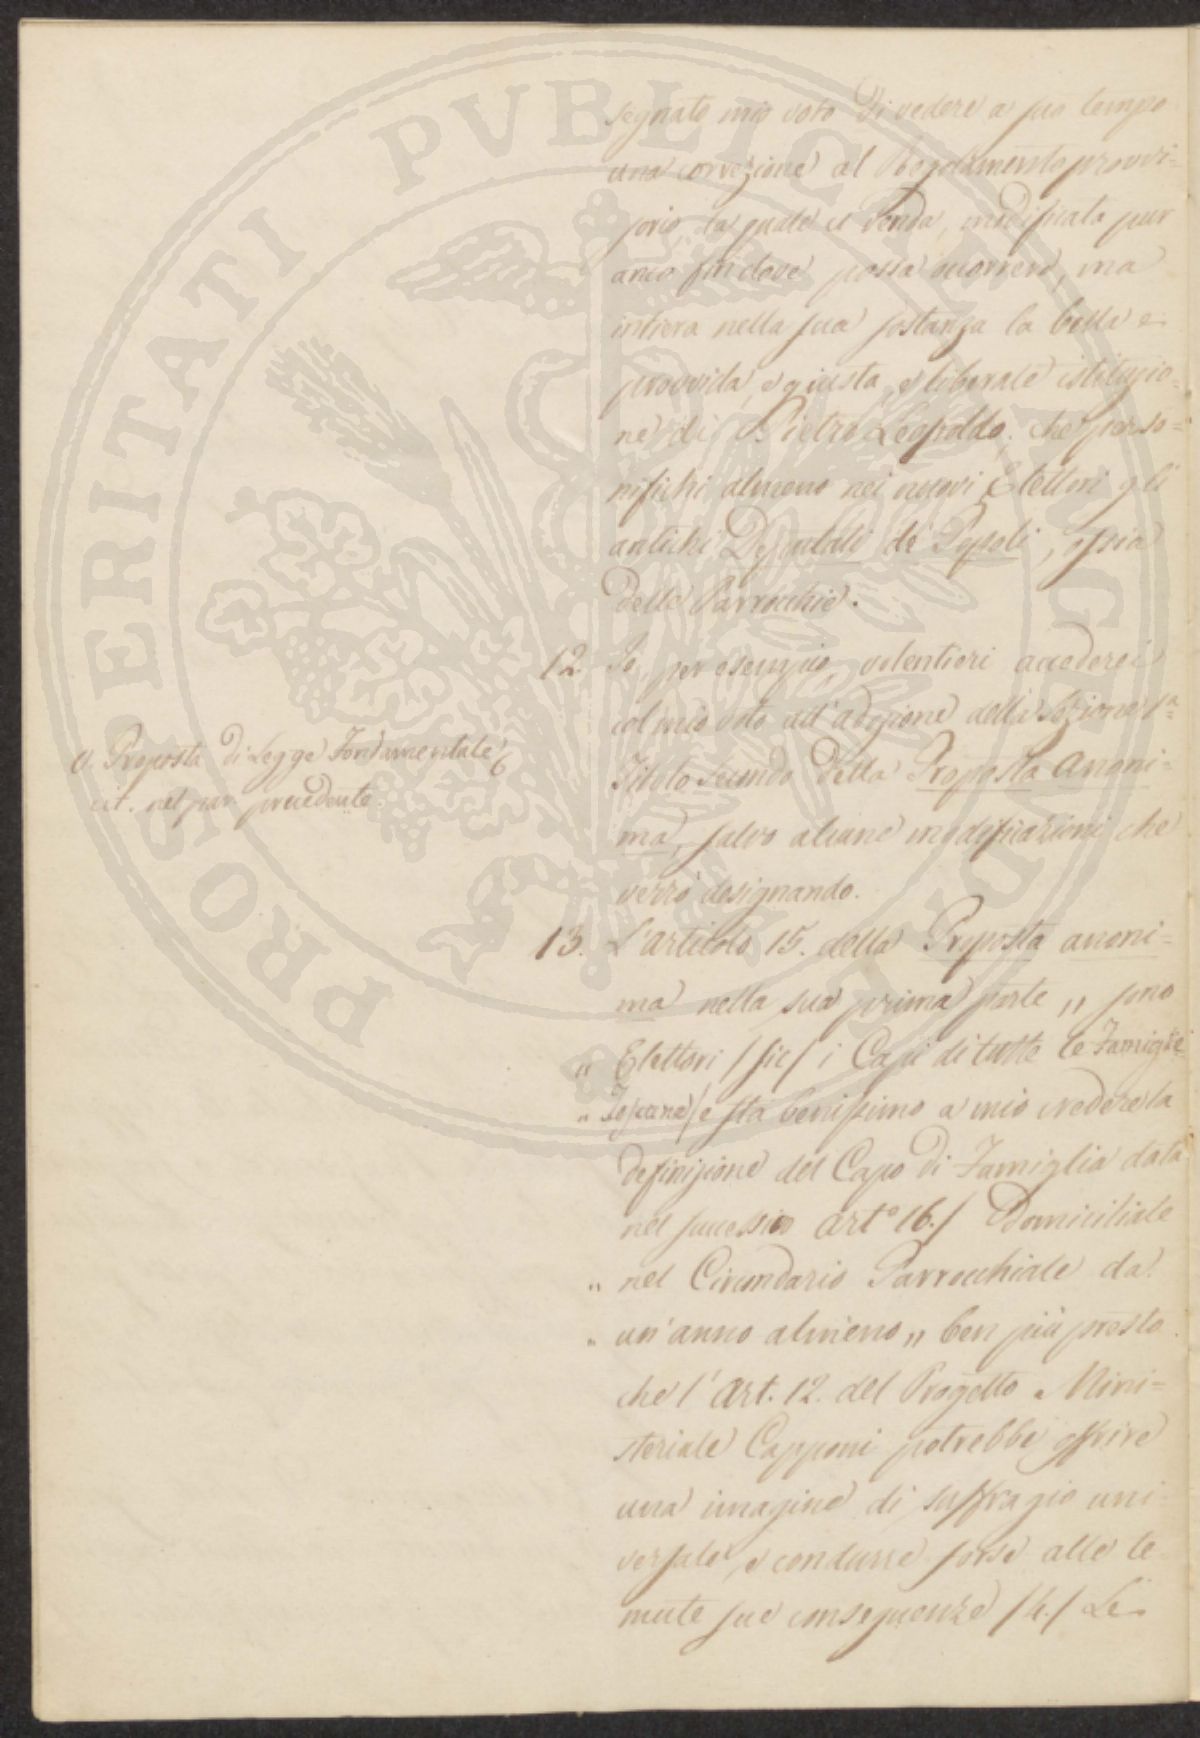 segnato mio voto di vedere a suo tempo
una correzione al Regolamento provvi=
sorio, la quale ci renda, modificata pur
anco fin dove possa occorrere, ma
intiera nella sua sostanza la bella e
provvida, e giusta, e liberale istituzio=
ne di Pietro Leopoldo, che perso=
nifichi almeno nei nuovi Elettori gli
antichi Deputati de' Popoli, ossia
delle Parrocchie.
12. Io, per esempio, volentieri accederei
col mio voto all'adozione della Sezione 1ª
Titolo Secondo della Proposta Anoni=
ma, salvo alcune modificazioni che
verrò designando.
V. Proposta di Legge Fondamentale
cit. nel par. precedente.
13. L'articolo 15. della Proposta anoni=
ma nella sua prima parte „ sono
„ Elettori /sic/ i Capi di tutte le Famiglie
„ Toscane / e sta benissimo a mio credere la
definizione del Capo di Famiglia data
nel successivo artº 16./ Domiciliate
„ nel Circondario Parrocchiale da
„ un'anno almeno „ ben più presto
che l'Art. 12. del Progetto Mini=
steriale Capponi potrebbe offrire
una imagine di suffragio uni
versale, e condurre forse alle te
mute sue conseguenze /4./ Le
PROSPERITATI PVBLICAE AVGENDAE